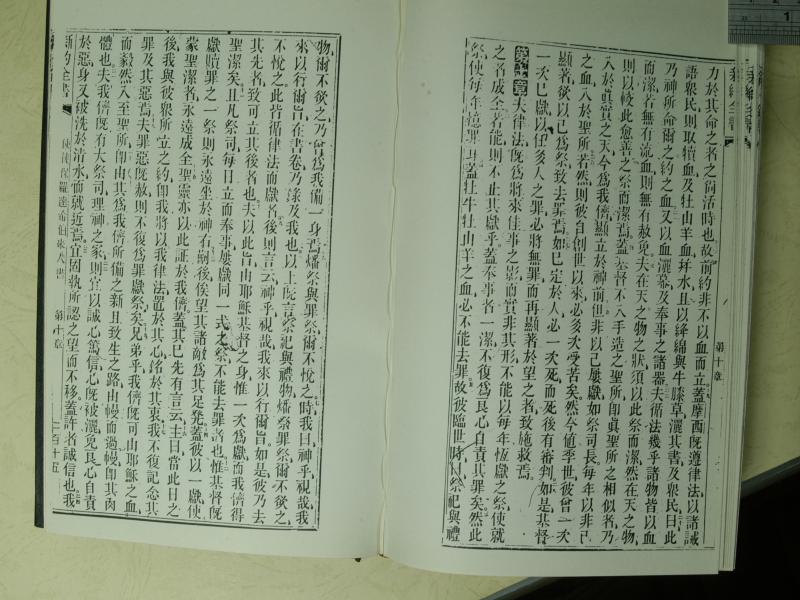 力於其命之者之尚活時也故前約非不以血而立蓋摩西既遵律法以諸誡
語衆民則取犢血及牡山羊血幷水且以絳綿與牛膝草灑其書及衆民曰此
乃神所命爾之約之血又以血灑幕及奉事之諸器夫循法幾乎諸物皆以血
而潔若無有流血則無有赦免夫在天之物之狀須以此祭而潔然在天之物
則以較此愈善之祭而潔焉蓋基督不入手造之聖所卽眞聖所之相似者乃
入於眞實之天今爲我儕顯立於神前但非以己屢獻如祭司長每年以非己
之血入於聖所若然則彼自創世以來必多次受苦矣然今値季世彼曾一次
顯著欲以己爲祭致去罪焉如已定於人必一次死而死後有審判如是基督
一次已獻以任多人之罪必將無罪而再顯著於望之者致施救焉
第十章 夫律法旣爲將來佳事之影而實非其形不能以每年恆獻之祭使就
之者成全若能則不止其獻乎蓋奉事者一潔不復爲良心自責其罪矣然此
祭使每年憶罪耳蓋牡牛牡山羊之血必不能去罪故彼臨世時曰祭祀與禮
第十章
物爾不欲之乃曾爲我備一身焉燔祭與罪祭爾不悅之時我曰神乎視哉我
來以行爾旨在書卷乃錄及我也以上旣言祭祀與禮物燔祭罪祭爾不欲之
不悅之此皆循律法而獻者後則言云神乎視哉我來以行爾旨如是彼乃去
其先者致可立其後者也夫以此旨由耶穌基督之身惟一次爲獻而我儕得
聖潔矣且凡祭司每日立而奉事屢獻同一式之祭不能去罪者也惟基督旣
獻贖罪之一祭則永遠坐於神右嗣後俟望其諸敵爲其足凳蓋彼以一獻使
蒙聖潔者永遠成全聖靈亦以此証於我儕蓋其已先有言云主曰當此日之
後我與彼衆所立之約卽我將以我律法置於其心銘於其衷我不復記念其
罪及其惡焉夫罪惡旣赦則不復爲罪獻祭矣兄弟乎我儕旣可由耶穌之血
而毅然入至聖所卽由其爲我儕所備之新且致生之路由幔而過幔卽其肉
體也夫我儕旣有大祭司理神之家則宜以誠心篤信心旣被灑免良心自責
於惡身又被洗於清水而就近焉宜固執所認之望而不移蓋許者誠信也我
新約全書 使徒保羅達希伯來人書 第十章 二百十五